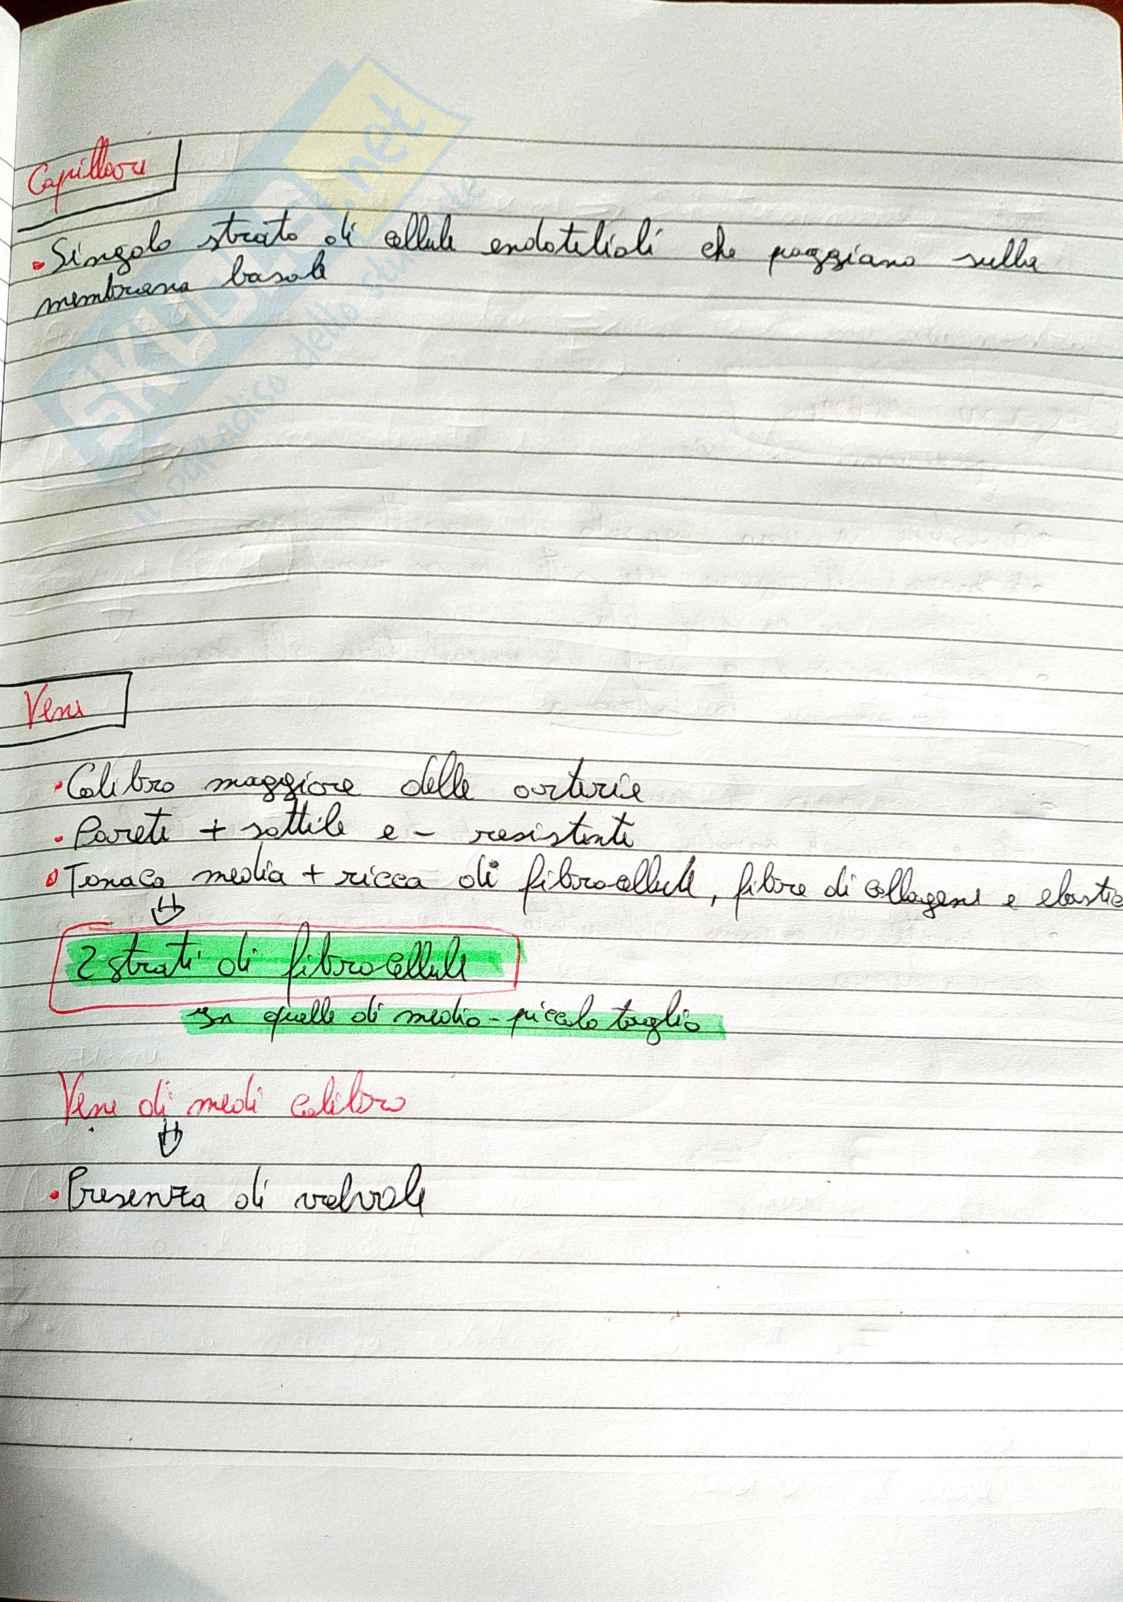 Capillari
• Singolo strato di cellule endoteliali che poggiano sulla
membrana basale
Vene
• Calibro maggiore delle arterie
• Pareti + sottile e - resistenti
• Tonaca media + ricca di fibrocellule, fibre di collagene e elastic
2 strati di fibrocellule
In quelle di medio-piccolo taglio
Vene di medi calibro
• Presenza di valvole
SKUOLA.net
il paradiso dello studente